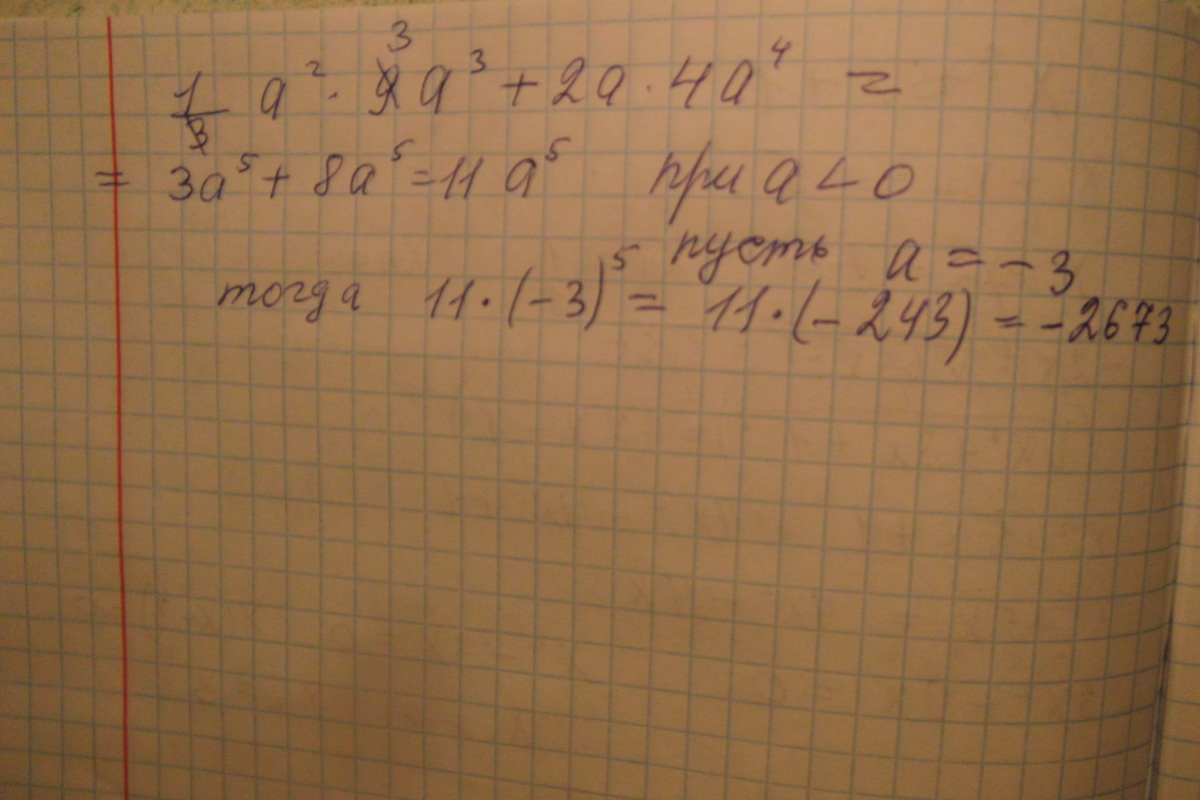 1/3 a² · 9a³ + 2a · 4a⁴ =
3
= 3a⁵ + 8a⁵ = 11 a⁵ при a < 0
пусть a = -3
тогда 11 · (-3)⁵ = 11 · (-243) = -2673